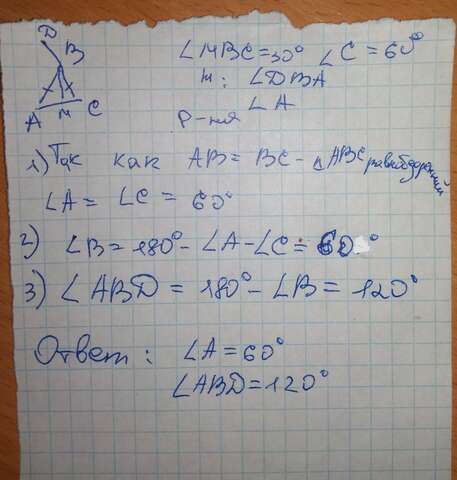 D
B
A M C
∠MBC=30° ∠C=60°
н: ∠DBA
∠A
Р-ния
1) Так как AB=BC-ΔABC равнобедренний
∠A=∠C=60°
2) ∠B=180°-∠A-∠C=60°
3) ∠ABD=180°-∠B=120°
Ответ: ∠A=60°
∠ABD=120°